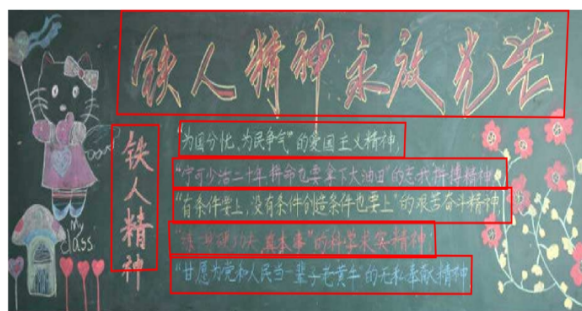 铁人精神永放光芒
铁人精神
"为国分忧、为民争气"的爱国主义精神;
"宁可少活二十年拼命也要拿下大油田"的忘我拼搏精神
"有条件要上,没有条件创造条件也要上"的艰苦奋斗精神
"练一身硬功夫、真本事"的科学求实精神;
"甘愿为党和人民当一辈子老黄牛"的无私奉献精神
My
class